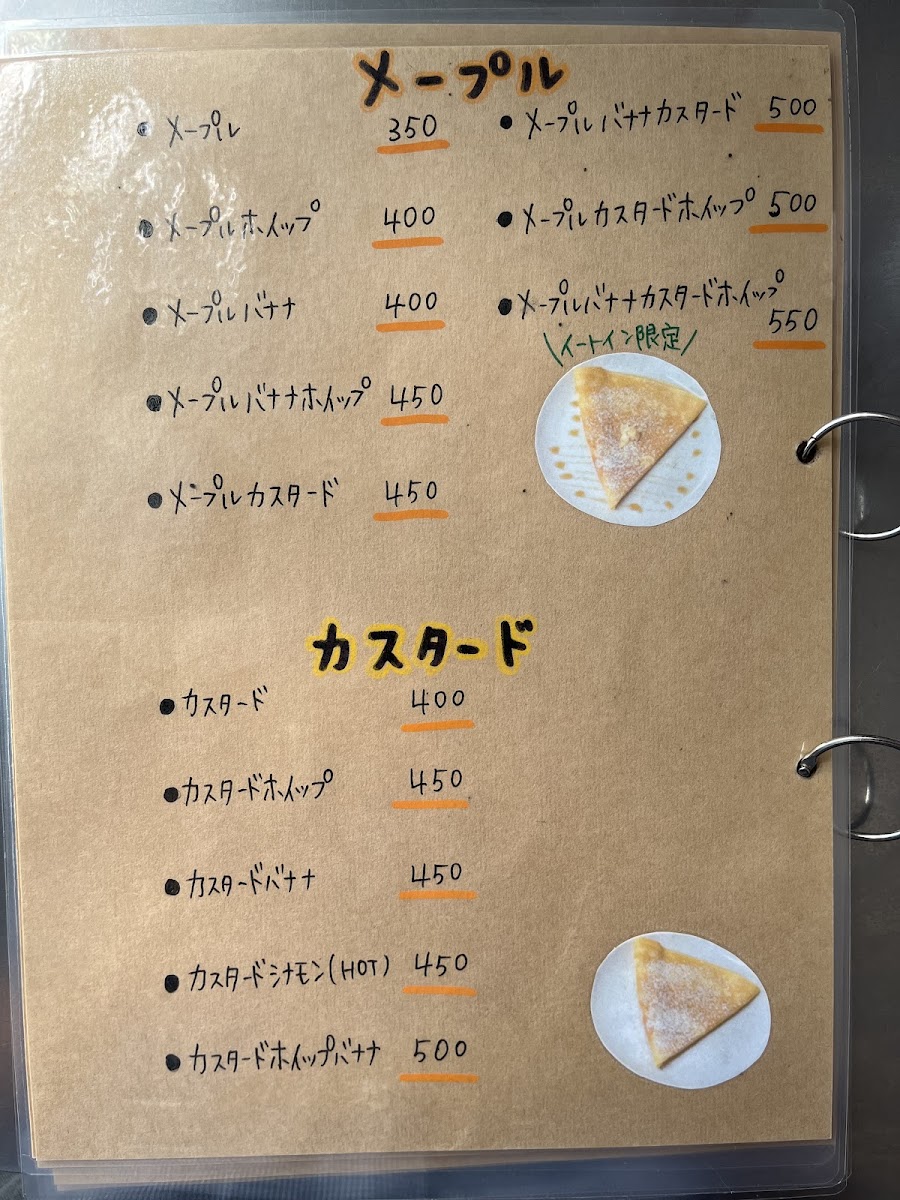 メープル
・メープル 350
・メープルホイップ 400
・メープルバナナ 400
・メープルバナナホイップ 450
・メープルカスタード 450
・メープルバナナカスタード 500
・メープルカスタードホイップ 500
・メープルバナナカスタードホイップ
550
\イートイン限定/
カスタード
・カスタード 400
・カスタードホイップ 450
・カスタードバナナ 450
・カスタードシナモン(HOT) 450
・カスタードホイップバナナ 500